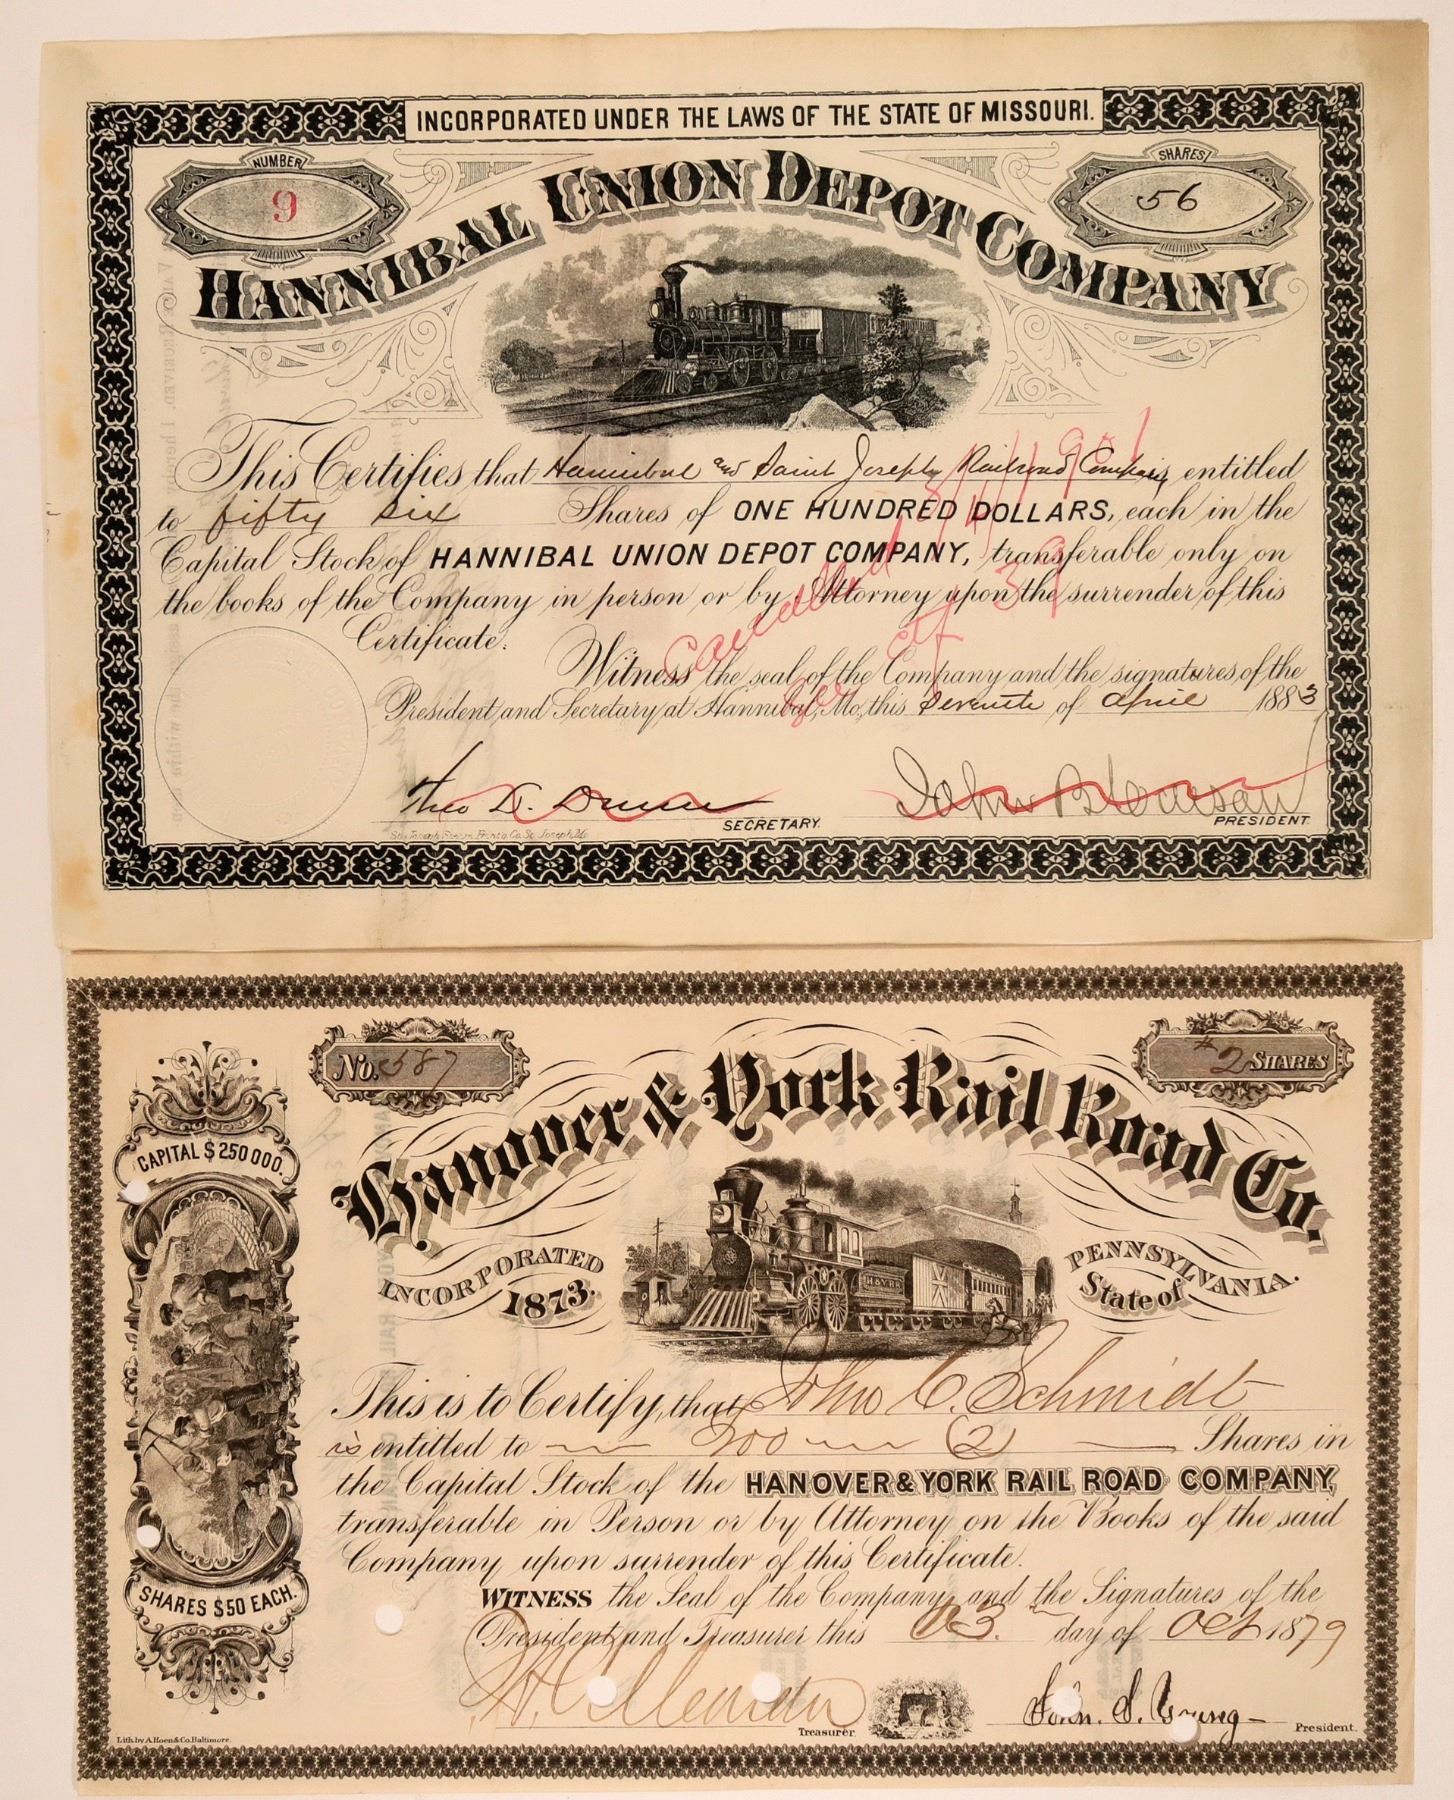 INCORPORATED UNDER THE LAWS OF THE STATE OF MISSOURI.
NUMBER
9
SHARES
56
HANNIBAL UNION DEPOT COMPANY
This Certifies that Hannibal and Saint Joseph Railroad Company entitled
to fifty six Shares of ONE HUNDRED DOLLARS, each in the
Capital Stock of HANNIBAL UNION DEPOT COMPANY, transferable only on
the books of the Company in person or by Attorney upon the surrender of this
Certificate.
Cancelled
Witness the seal of the Company and the signatures of the
President and Secretary at Hannibal, Mo, this Seventh of April 1883
Theo D.
SECRETARY.
John B
PRESIDENT.
No. 587
2 SHARES
Hanover & York Rail Road Co.
CAPITAL $250000.
INCORPORATED
1873.
PENNSYLVANIA.
State of
H&YRR
This is to Certify, that John C. Schmidt
is entitled to Two (2) Shares in
the Capital Stock of the HANOVER & YORK RAIL ROAD COMPANY,
transferable in Person or by Attorney on the Books of the said
Company upon surrender of this Certificate.
SHARES $50 EACH.
WITNESS the Seal of the Company and the Signatures of the
President and Treasurer this day of Oct 1879
Treasurer.
John. S. Young
President.
Lith by A. Hoen & Co. Baltimore.